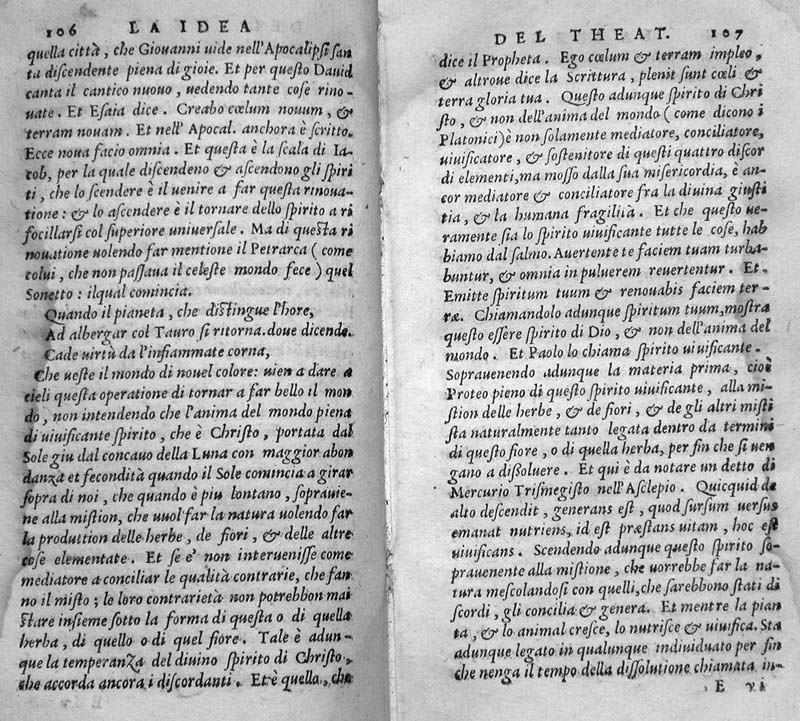 106 LA IDEA
quella città, che Giouanni uide nell'Apocalipsi san
ta discendente piena di gioie. Et per questo Dauid
canta il cantico nuouo, uedendo tante cose rino-
uate. Et Esaia dice. Creabo cœlum nouum, &
terram nouam. Et nell'Apocal. anchora è scritto.
Ecce noua facio omnia. Et questa è la scala di Ia-
cob, per la quale discendeno & ascendono gli spiri
ti, che lo scendere è il uenire a far questa rinoua-
tione: & lo ascendere è il tornare dello spirito a ri
focillarsi col superiore uniuersale. Ma di questa ri
nouatione uolendo far mentione il Petrarca (come
colui, che non passaua il celeste mondo fece) quel
Sonetto: ilqual comincia.
Quando il pianeta, che distingue l'hore,
Ad albergar col Tauro si ritorna. doue dicendo.
Cade uirtù da l'infiammate corna,
Che ueste il mondo di nouel colore: uien a dare a
cieli questa operatione di tornar a far bello il mon
do, non intendendo che l'anima del mondo piena
di uiuificante spirito, che è Christo, portata dal
Sole giu dal concauo della Luna con maggior abon
danza et fecondità quando il Sole comincia a girar
sopra di noi, che quando è piu lontano, soprauie-
ne alla mistion, che uuol far la natura uolendo far
la produttion delle herbe, de fiori, & delle altre
cose elementate. Et se e' non interuenisse come
mediatore a conciliar le qualità contrarie, che fan
no il misto; le loro contrarietà non potrebbon mai
stare insieme sotto la forma di questa o di quella
herba, di quello o di quel fiore. Tale è adun-
que la temperanza del diuino spirito di Christo,
che accorda ancora i discordanti. Et è quella, che
DEL THEAT. 107
dice il Propheta. Ego cœlum & terram impleo,
& altroue dice la Scrittura, plenit sunt cœli &
terra gloria tua. Questo adunque spirito di Chri
sto, & non dell'anima del mondo (come dicono i
Platonici) è non solamente mediatore, conciliatore,
uiuificatore, & sostenitore di questi quattro discor
di elementi, ma mosso dalla sua misericordia, è an-
cor mediatore & conciliator fra la diuina giusti
tia, & la humana fragilità. Et che questo ue-
ramente sia lo spirito uiuificante tutte le cose, hab
biamo dal salmo. Auertente te faciem tuam turba-
buntur, & omnia in puluerem reuertentur. Et.
Emitte spiritum tuum & renouabis faciem ter-
ræ. Chiamandolo adunque spiritum tuum, mostra
questo essere spirito di Dio, & non dell'anima del
mondo. Et Paolo lo chiama spirito uiuificante.
Soprauenendo adunque la materia prima, cioè
Proteo pieno di questo spirito uiuificante, alla mi-
stion delle herbe, & de fiori, & de gli altri misti
sta naturalmente tanto legata dentro da termini
di questo fiore, o di quella herba, per fin che si uen
gano a dissoluere. Et qui è da notare un detto di
Mercurio Trismegisto nell'Asclepio. Quicquid de
alto descendit, generans est, quod sursum uersus
emanat nutriens, id est præstans uitam, hoc est
uiuificans. Scendendo adunque questo spirito so-
prauenente alla mistione, che uorrebbe far la na-
tura mescolandosi con quelli, che sarebbono stati di
scordi, gli concilia & genera. Et mentre la pian
ta, & lo animal cresce, lo nutrisce & uiuifica. Sta
adunque legato in qualunque indiuiduato per fin
che nenga il tempo della dissolutione chiamata in-
E vi